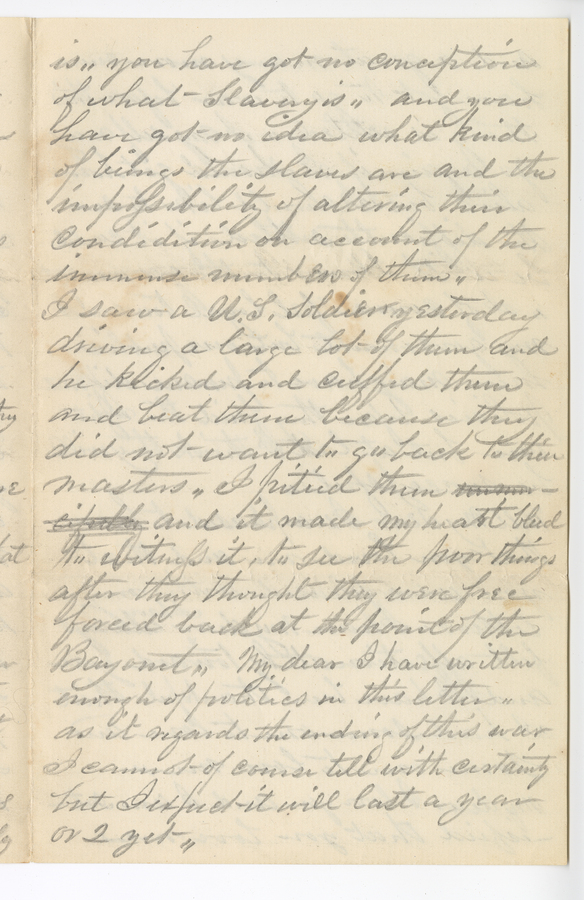 is,, you have got no conception
of what Slavery is,, and you
have got no idea what kind
of beings the slaves are and the
impossibility of altering their
condidition on account of the
immense numbers of them,,
I saw a U.S. Soldier yesterday
driving a large lot of them and
he kicked and cuffed them
and beat them because they
did not want to go back to their
masters,, I pitied them
and it made my heart bleed
to witness it, to see the poor things
after they thought they were free
forced back at the point of the
Bayonet,, My dear I have written
enough of politics in this letter,,
as it regards the ending of this war
I cannot of course tell with certainty
but I expect it will last a year
or 2 yet,,